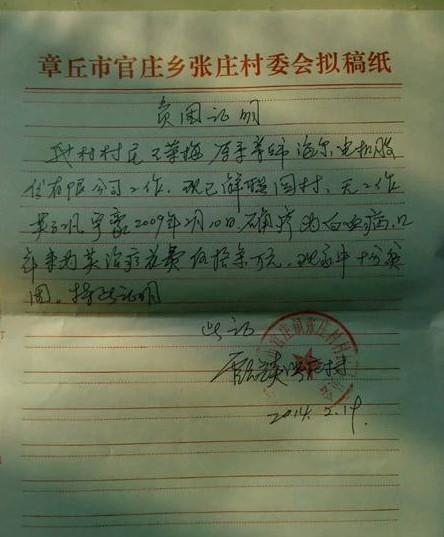 章丘市官庄乡张庄村委会拟稿纸
贫困证明
我村村民王荣梅 原系 海尔电机股
份有限公司工作,现已解聘回村,无工作
其 2009年2月10日确诊为白血病,
年来为其治疗花费伍拾余万元,现家中十分贫
困。特此证明
此证
2014.2.19.